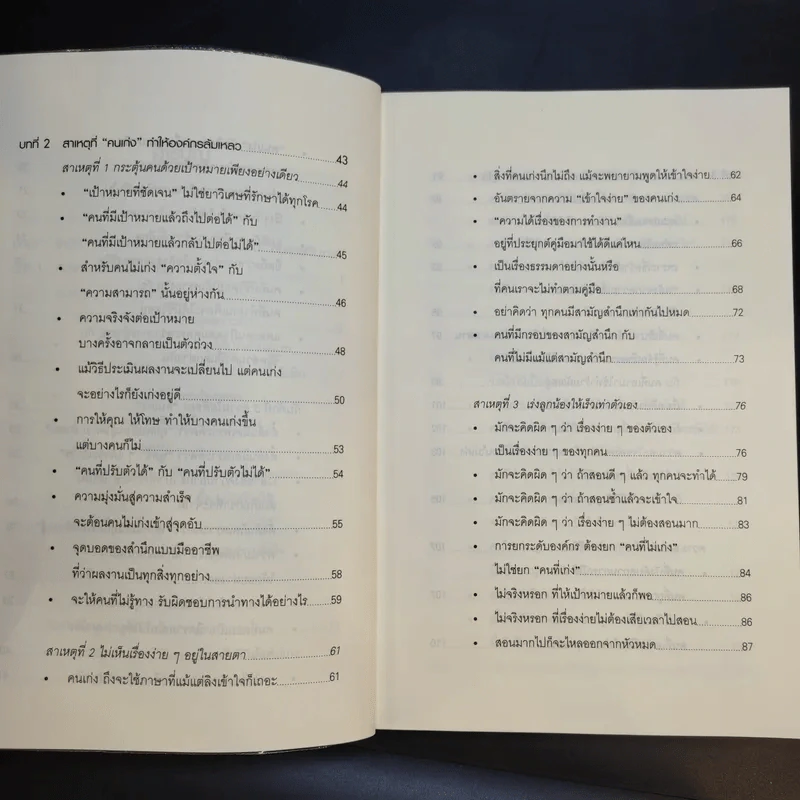 บทที่ 2 สาเหตุที่ “คนเก่ง” ทำให้องค์กรล้มเหลว 43
สาเหตุที่ 1 กระตุ้นคนด้วยเป้าหมายเพียงอย่างเดียว 44
• “เป้าหมายที่ชัดเจน” ไม่ใช่ยาวิเศษที่รักษาได้ทุกโรค 44
• “คนที่มีเป้าหมายแล้วถึงไปต่อได้” กับ
“คนที่มีเป้าหมายแล้วกลับไปต่อไม่ได้” 45
• สำหรับคนไม่เก่ง “ความตั้งใจ” กับ
“ความสามารถ” นั้นอยู่ห่างกัน 46
• ความจริงจังต่อเป้าหมาย
บางครั้งอาจกลายเป็นตัวถ่วง 48
• แม้วิธีประเมินผลงานจะเปลี่ยนไป แต่คนเก่ง
จะอย่างไรก็ยังเก่งอยู่ดี 50
• การให้คุณ ให้โทษ ทำให้บางคนเก่งขึ้น
แต่บางคนก็ไม่ 53
• “คนที่ปรับตัวได้” กับ “คนที่ปรับตัวไม่ได้” 54
• ความมุ่งมั่นสู่ความสำเร็จ
จะต้อนคนไม่เก่งเข้าสู่จุดอับ 55
• จุดบอดของสำนึกแบบมืออาชีพ
ที่ว่าผลงานเป็นทุกสิ่งทุกอย่าง 58
• จะให้คนที่ไม่รู้ทาง รับผิดชอบการนำทางได้อย่างไร 59
สาเหตุที่ 2 ไม่เห็นเรื่องง่าย ๆ อยู่ในสายตา 61
• คนเก่ง ถึงจะใช้ภาษาที่แม้แต่ลิงเข้าใจก็เถอะ 61
• สิ่งที่คนเก่งนึกไม่ถึง แม้จะพยายามพูดให้เข้าใจง่าย 62
• อันตรายจากความ “เข้าใจง่าย” ของคนเก่ง 64
• “ความได้เรื่องของการทำงาน”
อยู่ที่ประยุกต์คู่มือมาใช้ได้ดีแค่ไหน 66
• เป็นเรื่องธรรมดาอย่างนั้นหรือ
ที่คนเราจะไม่ทำตามคู่มือ 68
• อย่าคิดว่า ทุกคนมีสามัญสำนึกเท่ากันไปหมด 72
• คนที่มีกรอบของสามัญสำนึก กับ
คนที่ไม่มีแม้แต่สามัญสำนึก 73
สาเหตุที่ 3 เร่งลูกน้องให้เร็วเท่าตัวเอง 76
• มักจะคิดผิด ๆ ว่า เรื่องง่าย ๆ ของตัวเอง
เป็นเรื่องง่าย ๆ ของทุกคน 76
• มักจะคิดผิด ๆ ว่า ถ้าสอนดี ๆ แล้ว ทุกคนจะทำได้ 79
• มักจะคิดผิด ๆ ว่า ถ้าสอนซ้ำแล้วจะเข้าใจ 81
• มักจะคิดผิด ๆ ว่า เรื่องง่าย ๆ ไม่ต้องสอนมาก 83
• การยกระดับองค์กร ต้องยก “คนที่ไม่เก่ง”
ไม่ใช่ยก “คนที่เก่ง” 84
• ไม่จริงหรอก ที่ให้เป้าหมายแล้วก็พอ 86
• ไม่จริงหรอก ที่เรื่องง่ายไม่ต้องเสียเวลาไปสอน 86
• สอนมากไปก็จะไหลออกจากหัวหมด 87